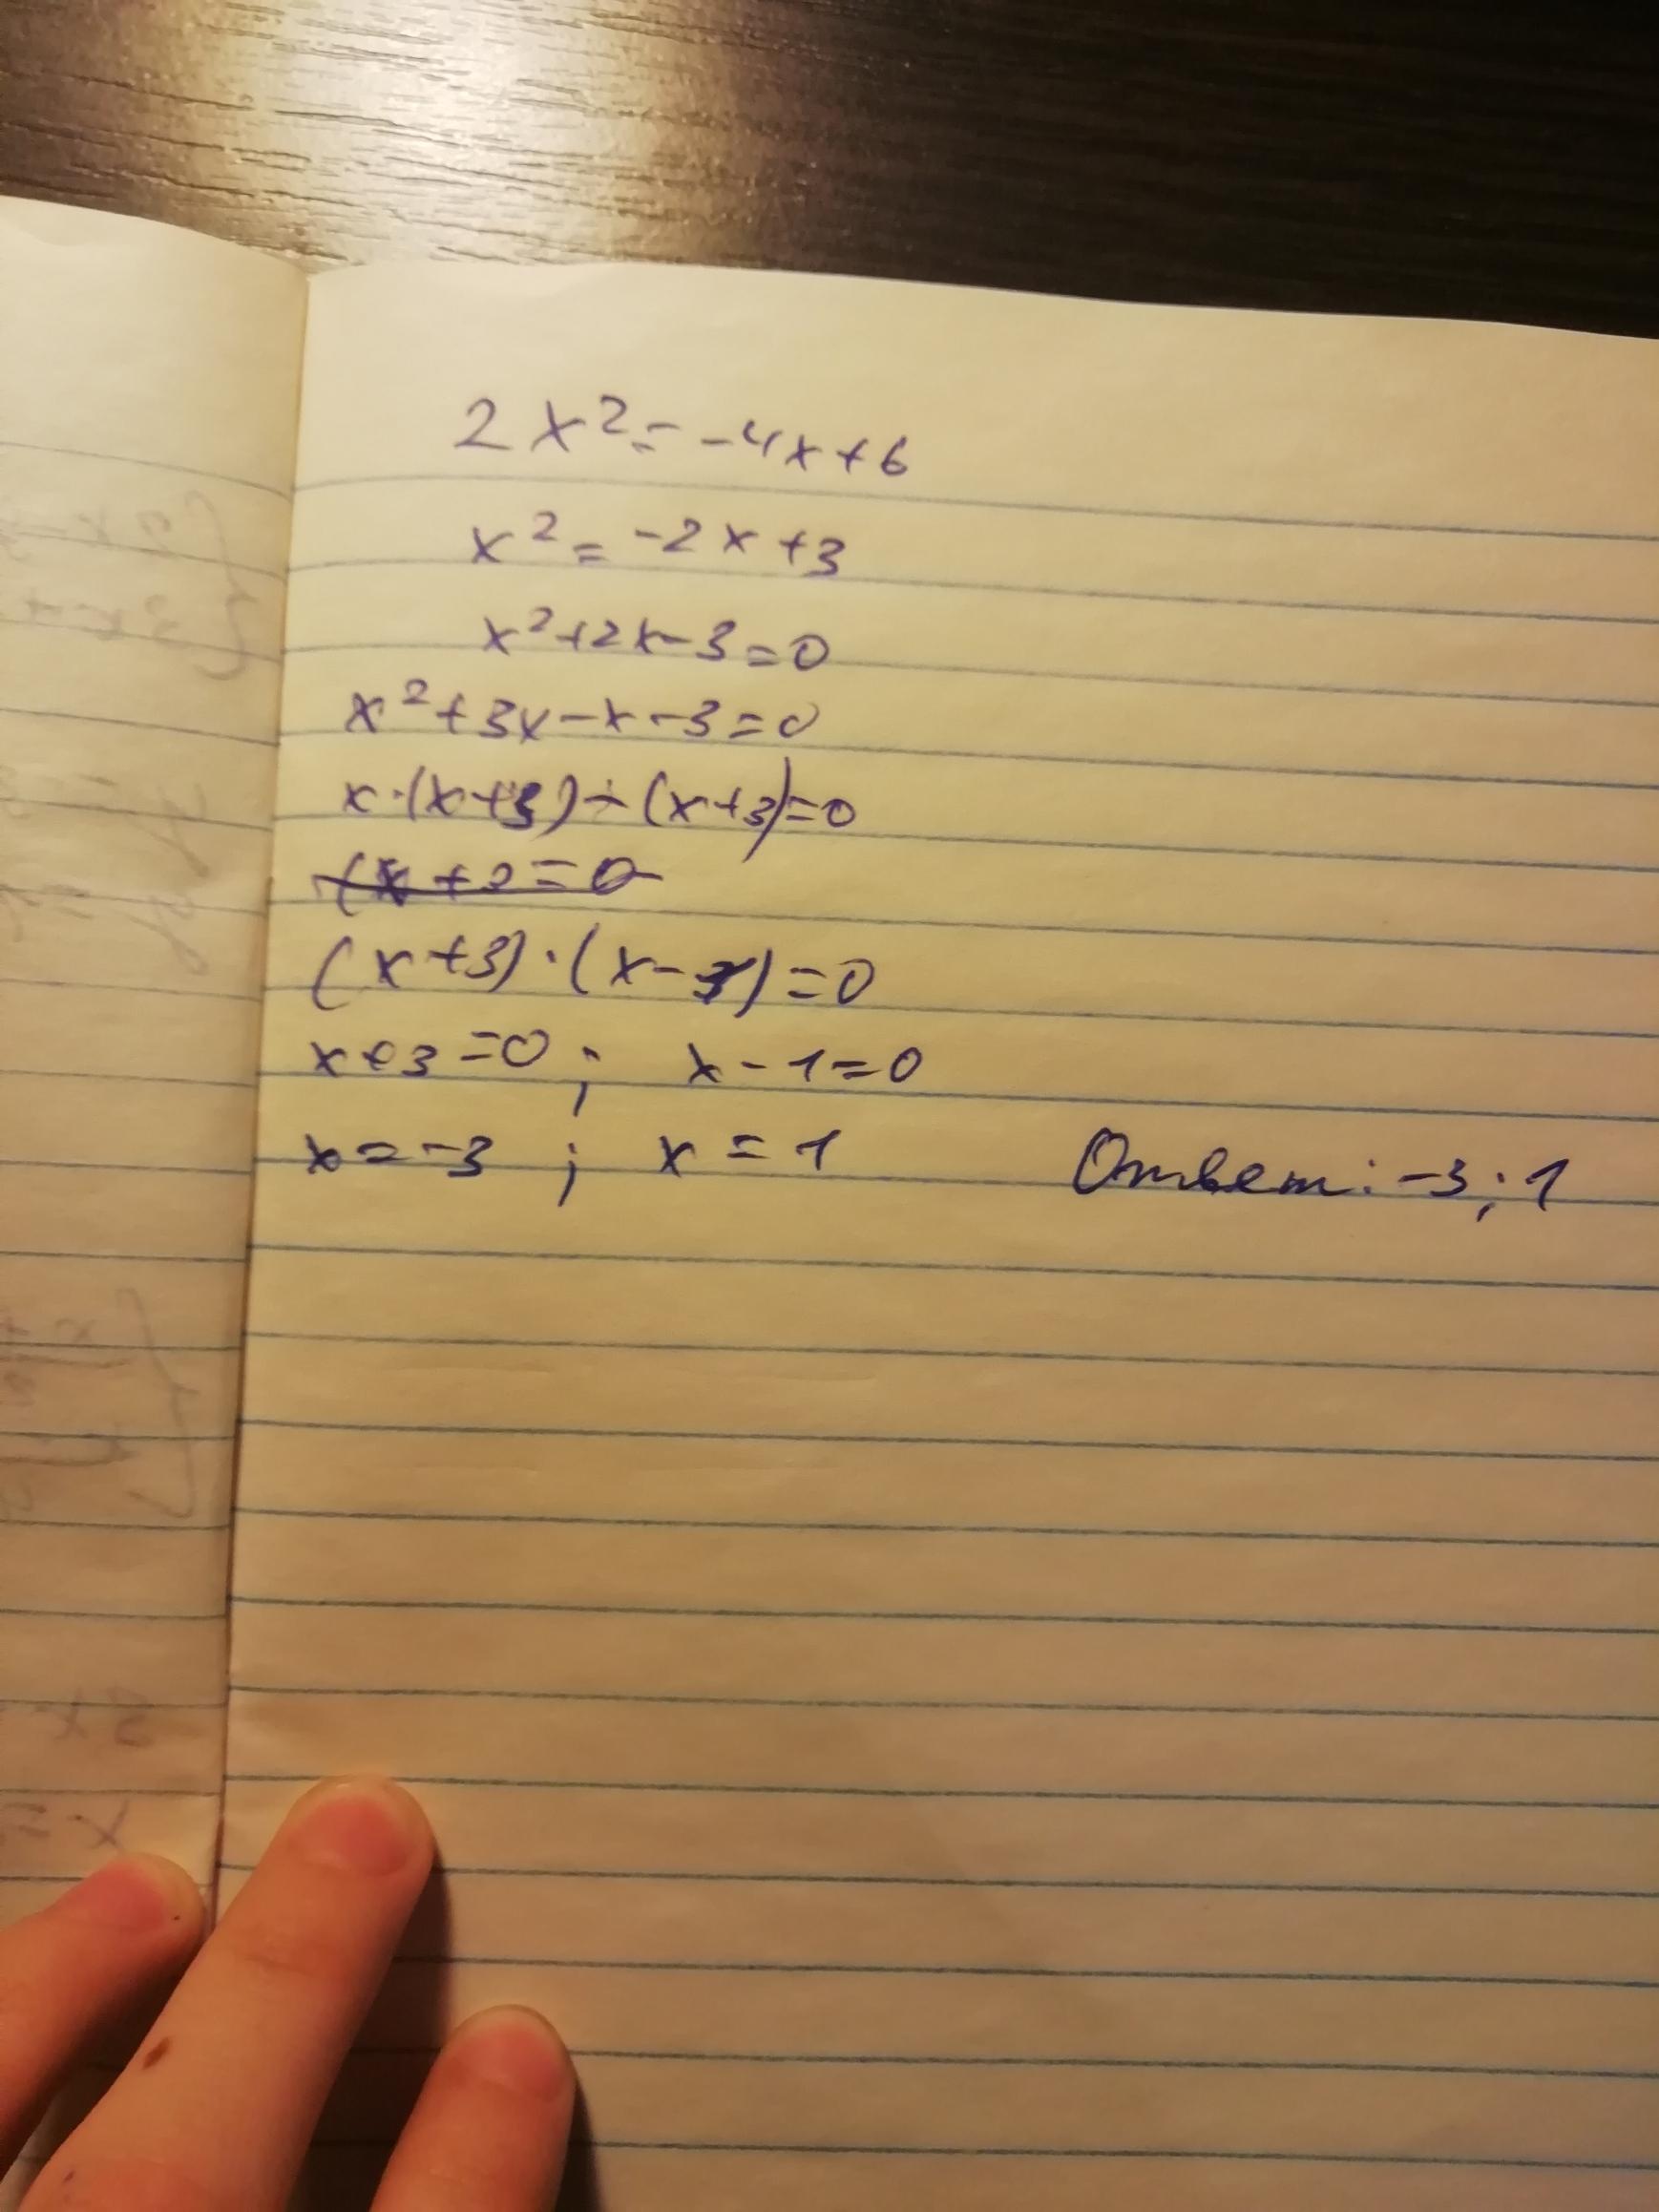 2x² = -4x+6
x² = -2x+3
x²+2x-3=0
x²+3x-x-3=0
x·(x+3)-(x+3)=0
(x+3)·(x-1)=0
x+3=0; x-1=0
x=-3; x=1 Ответ: -3; 1